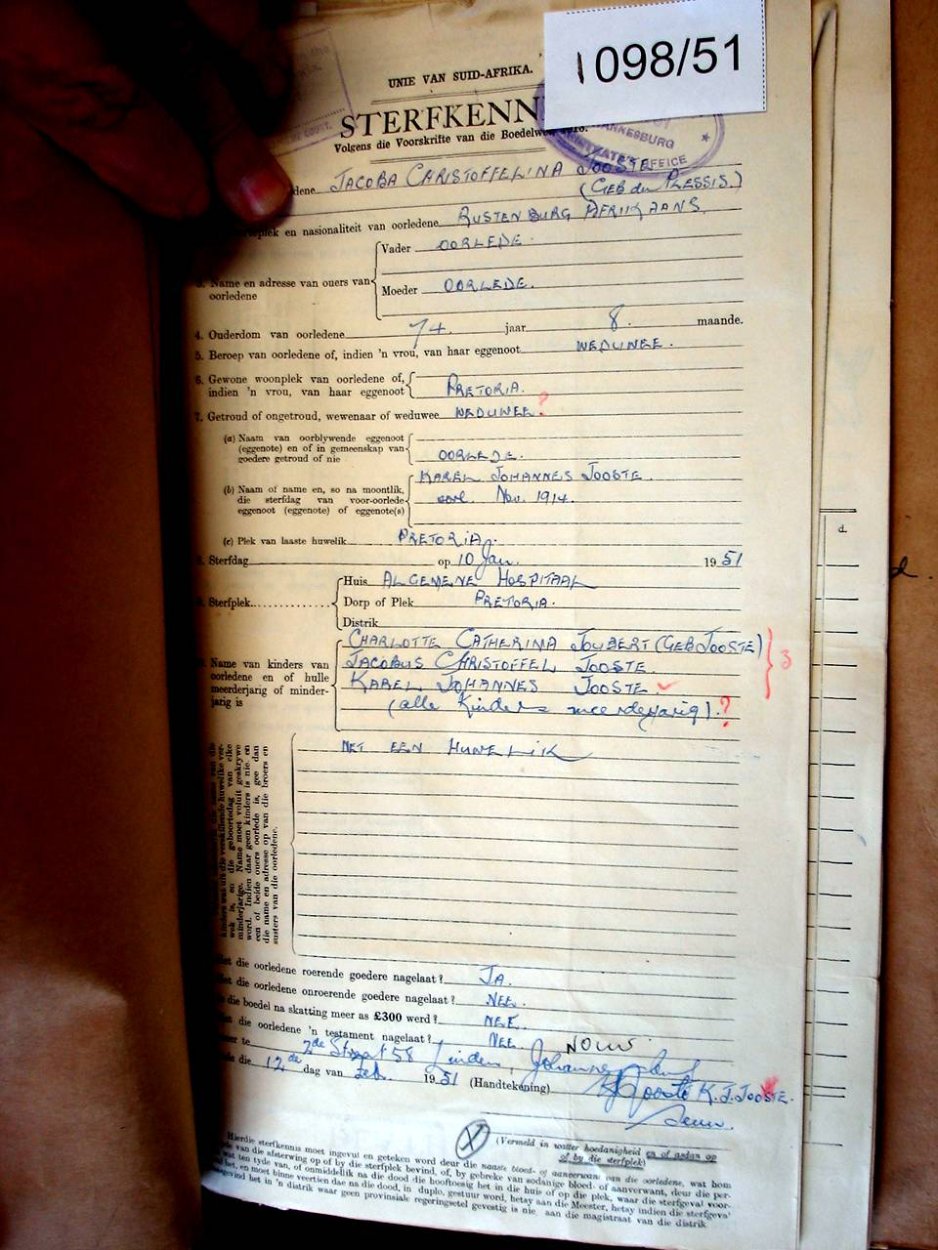 1098/51
UNIE VAN SUID-AFRIKA.
STERFKENN
Volgens die Voorskrifte van die Boedelwet
JOHANNESBURG
MAGISTRATE'S OFFICE
JACOBA CHRISTOFFELINA JOOSTE
(GEB du PLESSIS.)
en nasionaliteit van oorledene RUSTENBURG AFRIKAANS.
3. Name en adresse van ouers van oorledene
Vader OORLEDE.
Moeder OORLEDE.
4. Ouderdom van oorledene 74. jaar 8. maande.
5. Beroep van oorledene of, indien 'n vrou, van haar eggenoot WEDUWEE.
6. Gewone woonplek van oorledene of,
indien 'n vrou, van haar eggenoot PRETORIA.
7. Getroud of ongetroud, wewenaar of weduwee WEDUWEE ?
(a) Naam van oorblywende eggenoot
(eggenote) en of in gemeenskap van
goedere getroud of nie OORLEDE.
KAREL JOHANNES JOOSTE.
(b) Naam of name en, so na moontlik,
die sterfdag van voor-oorlede Nov. 1914.
eggenoot (eggenote) of eggenote(s)
(c) Plek van laaste huwelik PRETORIA.
8. Sterfdag op 10 Jan. 1951
9. Sterfplek
Huis ALGEMENE HOSPITAAL
Dorp of Plek PRETORIA.
Distrik
CHARLOTTE CATHERINA JOUBERT (GEB JOOSTE)
Name van kinders van JACOBUS CHRISTOFFEL JOOSTE 3
oorledene en of hulle KAREL JOHANNES JOOSTE
meerderjarig of minder-
jarig is (alle Kinders meerderjarig). ?
NET EEN HUWELIK
minderjarige. Name moet voluit geskrywe
word. Indien daar geen kinders is nie, en
een of beide ouers oorlede is, gee dan
die name en adresse op van die broers en
susters van die oorledene.
die oorledene roerende goedere nagelaat? JA.
die oorledene onroerende goedere nagelaat? NEE.
die boedel na skatting meer as £300 werd? NEE.
die oorledene 'n testament nagelaat? NEE. NOUW
te 2de Straat 58 Linden, Johannesburg
die 12de dag van Feb. 1951 (Handtekening) KJ Jooste K. J. JOOSTE.
Seun.
(Vermeld in watter hoedanigheid en of aldan op
of by die sterfplek)
Hierdie sterfkennis moet ingevul en geteken word deur die naaste bloed- of aanverwant van die oorledene, wat hom
van die afsterwing op of by die sterfplek bevind, of, by gebreke van sodanige bloed- of aanverwant, deur die per-
wat ten tyde van, of onmiddellik na die dood die hooftoesig het in die huis of op die plek, waar die sterfgeval voor-
het, en moet binne veertien dae na die dood, in duplo, gestuur word, hetsy aan die Meester, hetsy indien die sterfgeval
het in 'n distrik waar geen provinsiale regeringsetel gevestig is nie, aan die magistraat van die distrik.
d.